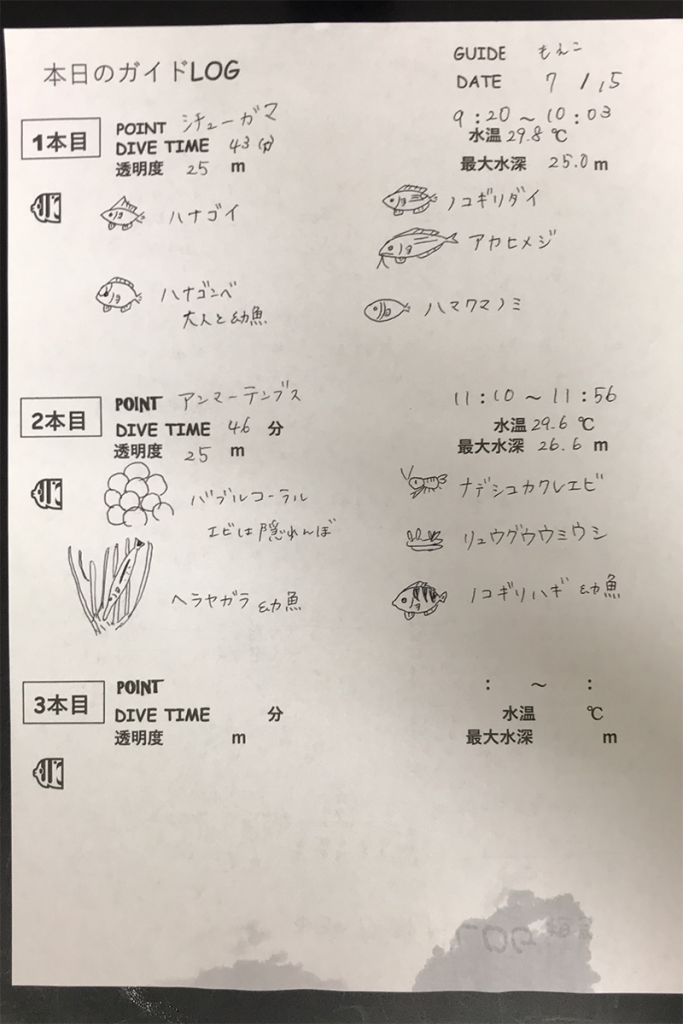 本日のガイドLOG
GUIDE もえこ
DATE 7/15
1本目
POINT シチューガマ
9:20～10:03
DIVE TIME 43(分)
水温29.8℃
透明度 25 m
最大水深 25.0m
ハナゴイ
ノコギリダイ
アカヒメジ
ハナゴンベ
大人と幼魚
ハマクマノミ
2本目
POINT アンマーテンブス
11:10～11:56
DIVE TIME 46 分
水温29.6℃
透明度 25 m
最大水深 26.6 m
バブルコーラル
エビはかくれんぼ
ナデシコカクレエビ
リュウグウウミウシ
ヘラヤガラ 幼魚
ノコギリハギ 幼魚
3本目
POINT
: ～ :
DIVE TIME 分
水温 ℃
透明度 m
最大水深 m